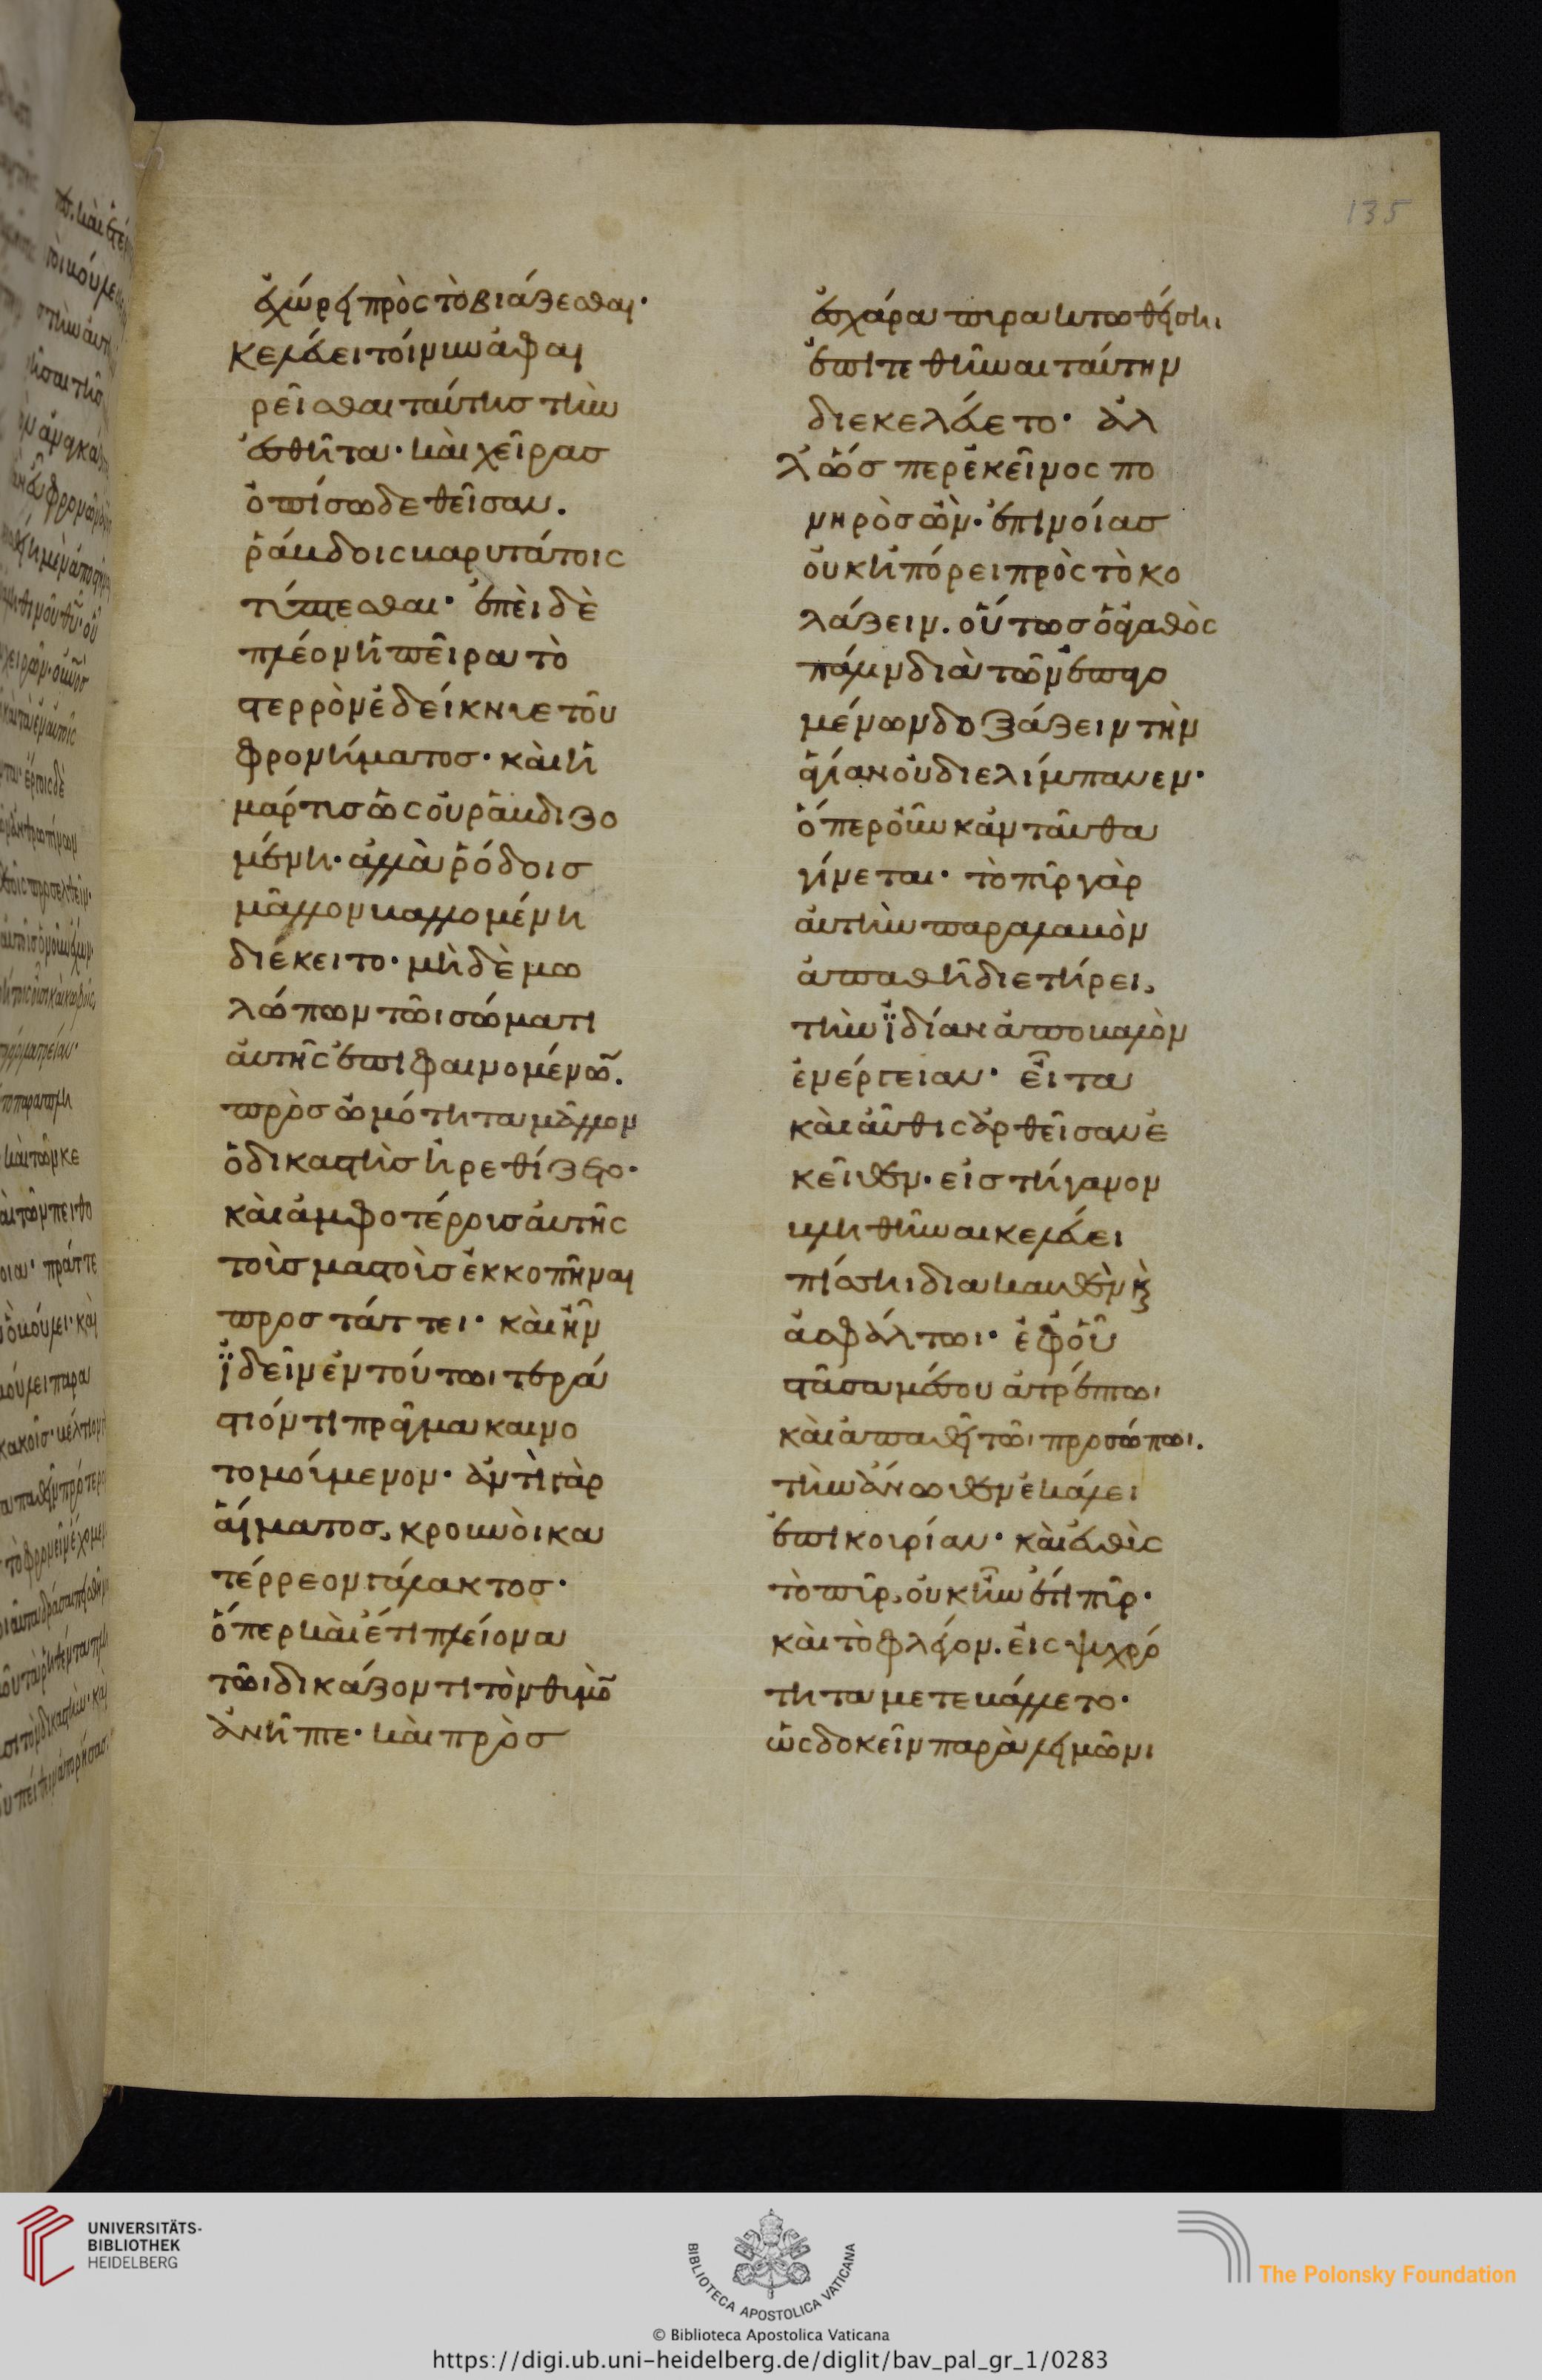 ἐχώρει πρὸς τὸ βιάζεσθαι·
Κελεύει τοίνυν ἀφαι
ρεῖσθαι ταύτης τὴν
ἐσθῆτα· καὶ χεῖρας
ὀπίσω δεθεῖσαν.
ῥάβδοις βαρυτάτοις
τύπτεσθαι· ἐπεὶ δὲ
πλέον ἡ πεῖρα τὸ
στερρὸν ἐδείκνυε τοῦ
φρονήματος· καὶ ἡ
μάρτυς ὡς οὐ ῥαβδιζο
μένη· ἀλλὰ ῥόδοις
μᾶλλον βαλλομένη
διέκειτο· μηδὲ μω
λώπων τῶι σώματι
αὐτῆς ἐπιφαινομένω̅.
πρὸς ὠμότητα μᾶλλον
ὁ δικαστὴς ἠρεθίζετο·
καὶ ἀμφοτέρους αὐτῆς
τοὺς μαστοὺς ἐκκοπῆναι
προστάττει· καὶ ἦν
ἰδεῖν ἐν τούτωι τερά
στιόν τι πρᾶγμα καινο
τομούμενον· ἀντὶ γὰρ
αἵματος, κρουνοὶ κα
τέρρεον γάλακτος·
ὅπερ καὶ ἔτι πλείονα
τῶι δικάζοντι τὸν θυμὸ̅
ἀνῆπτε· καὶ πρὸς
ἐσχάρα πυρακτωθείσηι
ἐπιτεθῆναι ταύτην
διεκελεύετο· ἀλ
λ' ὥσπερ ἐκεῖνος πο
νηρὸς ὢν· ἐπινοίας
οὐκ ἠπόρει πρὸς τὸ κο
λάζειν. οὕτως ὁ ἀγαθὸς
πάλιν διὰ τῶν ἐπαγο
μένων δοξάζειν τὴν
ἁγίαν οὐ διελίμπανεν·
ὅπερ οὖν κἀνταῦθα
γίνεται· τὸ πῦρ γὰρ
αὐτὴν παραλαβὸν
ἀπαθῆ διετήρει,
τὴν ἰδίαν ἀποβαλὸν
ἐνέργειαν· εἶτα
καὶ αὖθις ἀρθεῖσαν ἐ
κεῖθεν· εἰς τήγανον
βληθῆναι κελεύει
πίσσηι διακαυθὲν ϗ
ἀσφάλτωι· ἐφ' οὗ
στᾶσα μέσου ἀτρέπτωι
καὶ ἀπαθεῖ τῶι προσώπωι.
τὴν ἄνωθεν ἐκάλει
ἐπικουρίαν· καὶ εὐθὺς
τὸ πῦρ, οὐκ ἦν ἔτι πῦρ·
καὶ τὸ φλέγον. εἰς ψυχρό
τητα μετεβάλλετο·
ὡς δοκεῖν παρὰ λειμῶνι
135
UNIVERSITÄTS-
BIBLIOTHEK
HEIDELBERG
BIBLIOTECA APOSTOLICA VATICANA
The Polonsky Foundation
© Biblioteca Apostolica Vaticana
https://digi.ub.uni-heidelberg.de/diglit/bav_pal_gr_1/0283